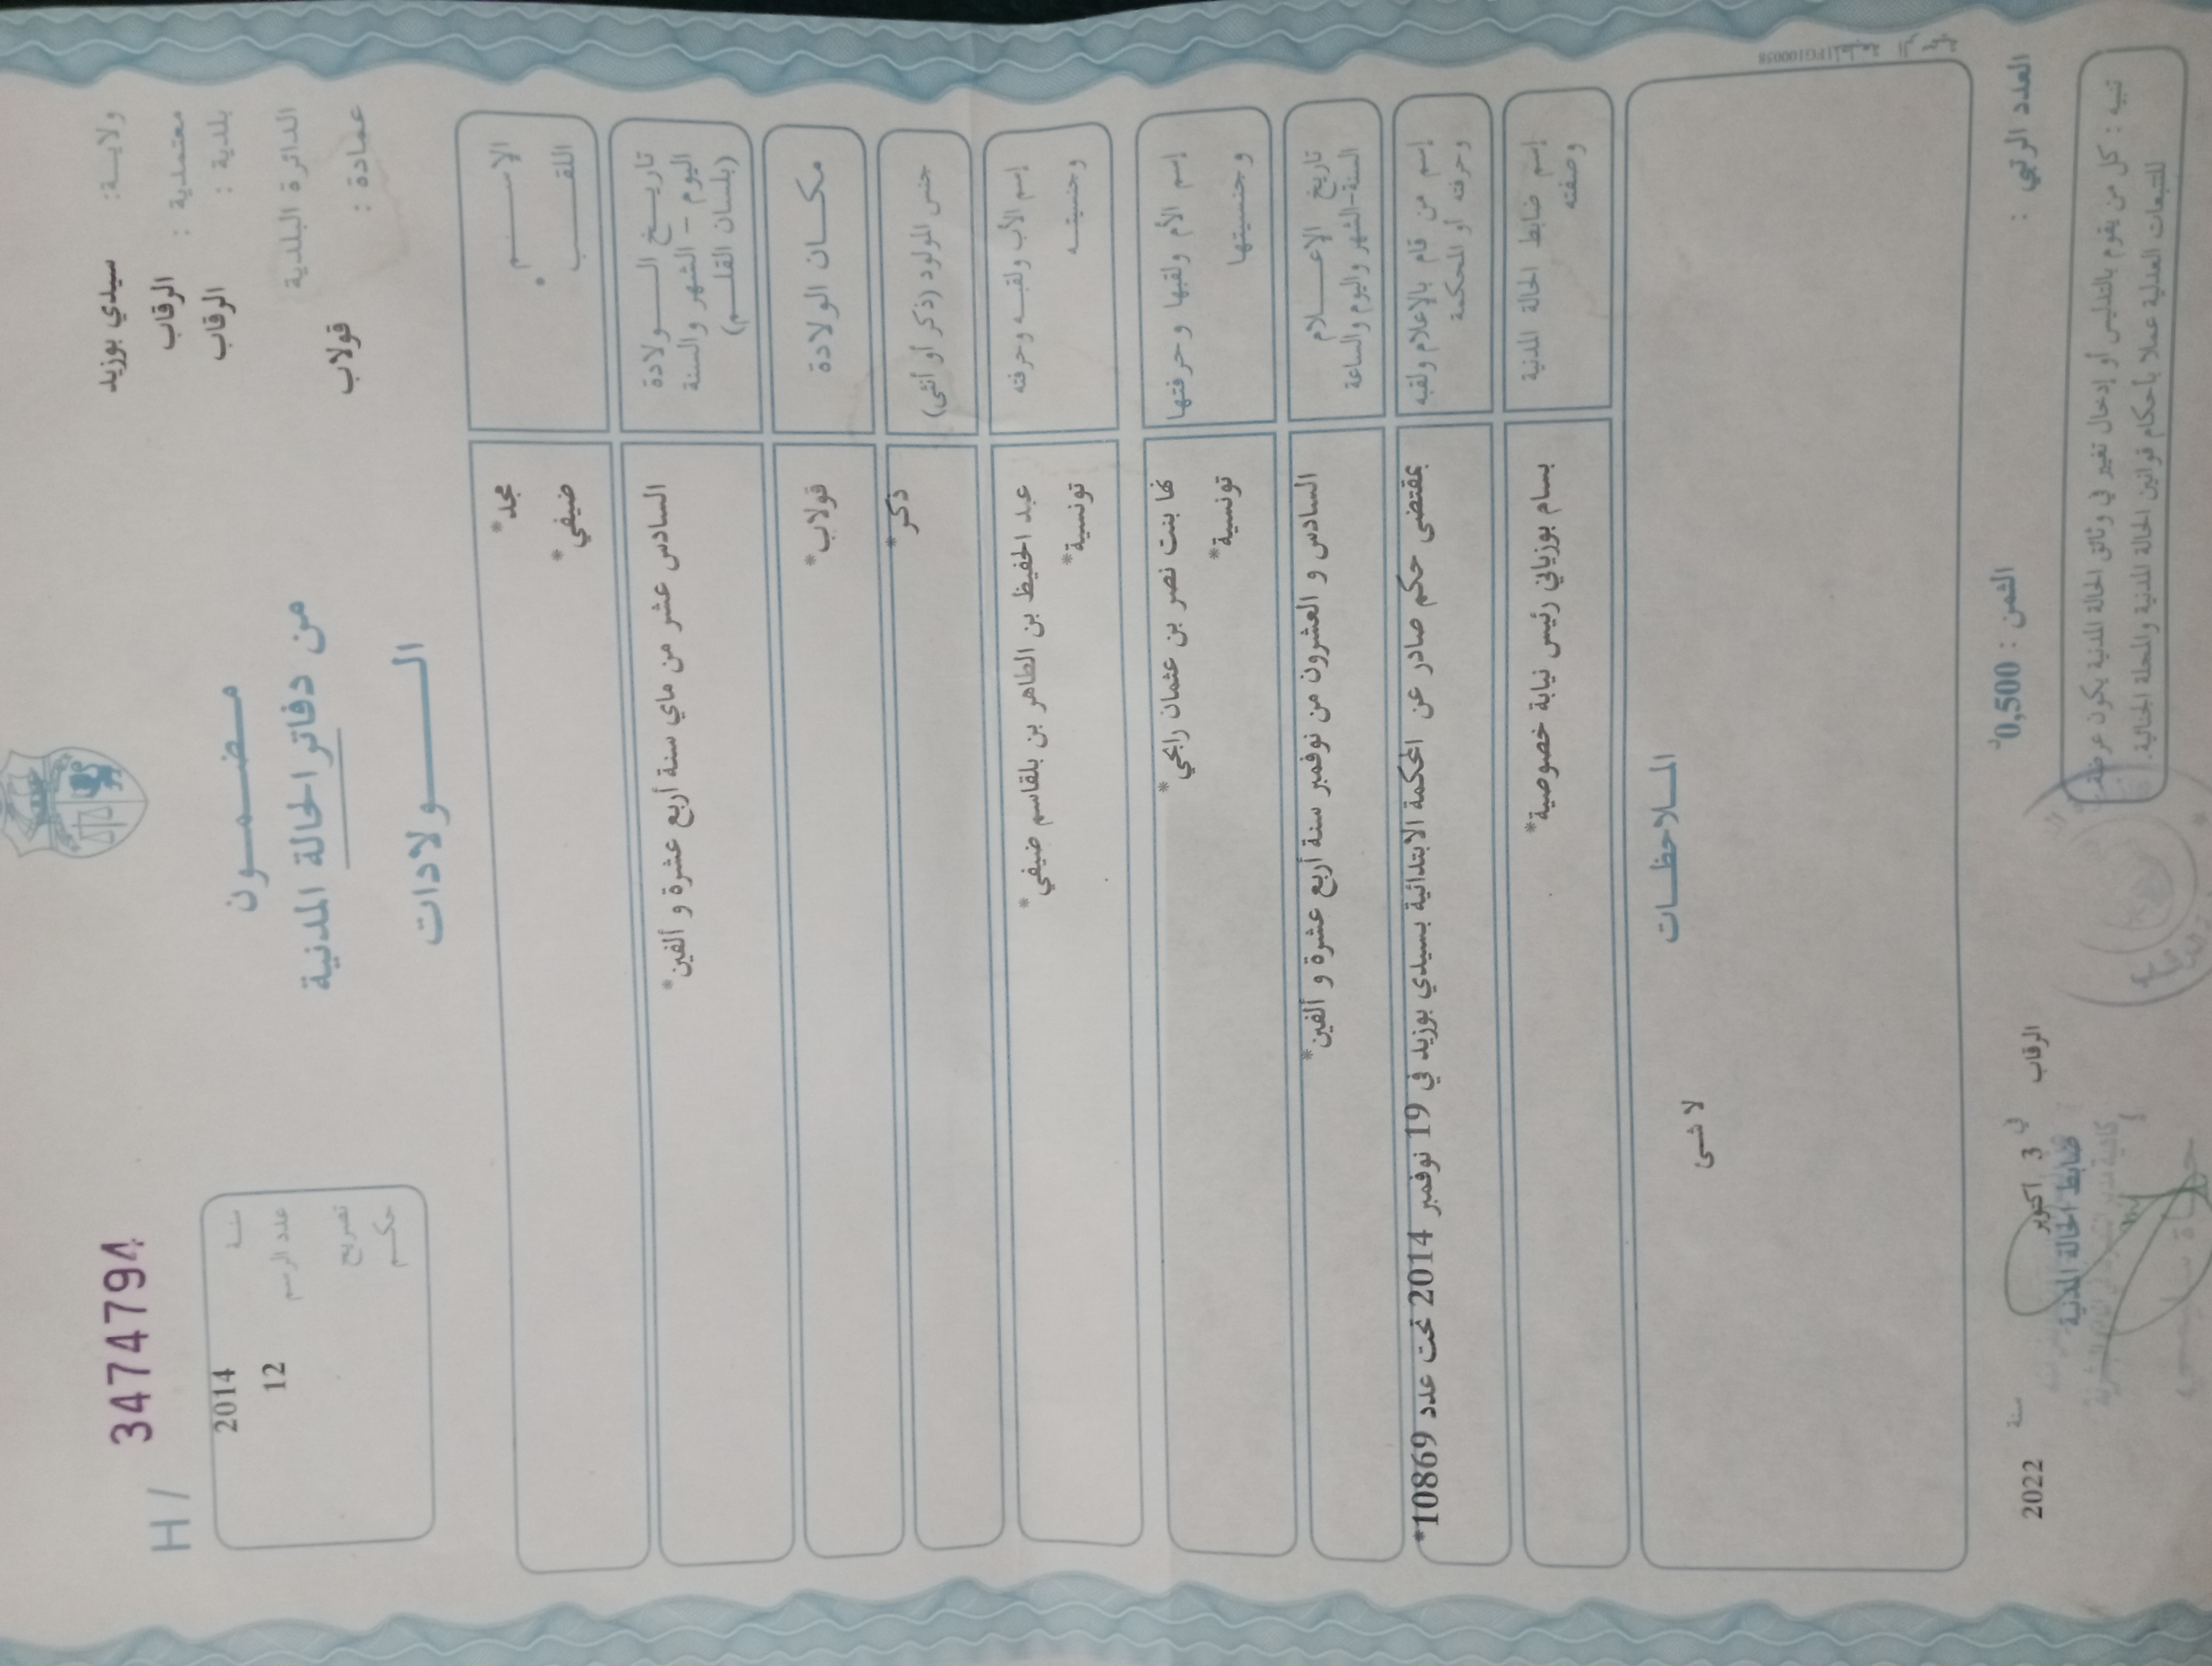 ولايـة: سيدي بوزيد
معتمدية : الرقاب
بلدية : الرقاب
الدائرة البلدية
عمادة : قولاب
مـضـمـون
من دفاتر الحالة المدنية
الـولادات
H / 3474794
سنة 2014
عدد الرسم 12
تصريح
حكم
الإسـم *
اللقـب ضيفي*
تاريـخ الـولادة
اليوم – الشهر والسنة
(بلسان القلـم)
السادس عشر من ماي سنة أربع عشرة و ألفين*
مكـان الولادة
قولاب*
جنس المولود (ذكر أو أنثى)
ذكر*
إسم الأب ولقبـه وحرفته
وجنسيتـه
عبد الحفيظ بن الطاهر بن بلقاسم ضيفي*
تونسية*
إسم الأم ولقبها وحرفتها
وجنسيتها
بنت نصر بن عثمان رابحي*
تونسية*
تاريخ الإعـلام
السنة-الشهر واليوم والساعة
السادس و العشرون من نوفمبر سنة أربع عشرة و ألفين*
إسم من قام بالإعلام ولقبه
وحرفته أو المحكمة
بمقتضى حكم صادر عن المحكمة الابتدائية بسيدي بوزيد في 19 نوفمبر 2014 تحت عدد 10869*
إسم ضابط الحالة المدنية
وصفته
بسام بوزياني رئيس نيابة خصوصية*
المـلاحظـات
لا شى
العدد الرتبي :
الثمن : 0,500د
الرقاب في 3 اكتوبر سنة 2022
ضابط الحالة المدنية
تنبيه : كل من يقوم بالتدليس أو إدخال تغيير في وثائق الحالة المدنية يكون عرضة
للتتبعات العدلية عملا بأحكام قوانين الحالة المدنية والمجلة الجنائية.